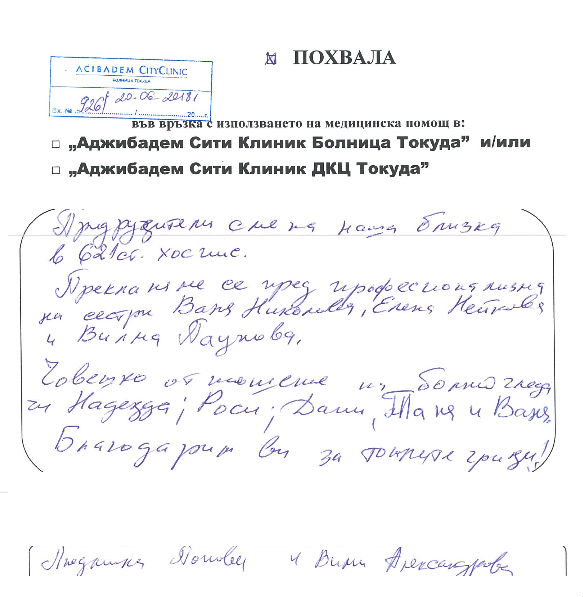 ☒ ПОХВАЛА
ACIBADEM CITYCLINIC
БОЛНИЦА ТОКУДА
Вх. № 926/ 20-06-2018г
във връзка с използването на медицинска помощ в:
□ „Аджибадем Сити Клиник Болница Токуда” и/или
□ „Аджибадем Сити Клиник ДКЦ Токуда”
Придружители сме на наша близка
в 621 ст. хоспис.
Прекланяме се пред професионализма
на сестри Ваня Николова, Елена Нейкова
и Вилма Паунова.
Човешко отношение на болногледа
чи Надежда; Роси; Дани, Таня и Ваня.
Благодарим Ви за топлите грижи!
Людмила и Вили Александрова